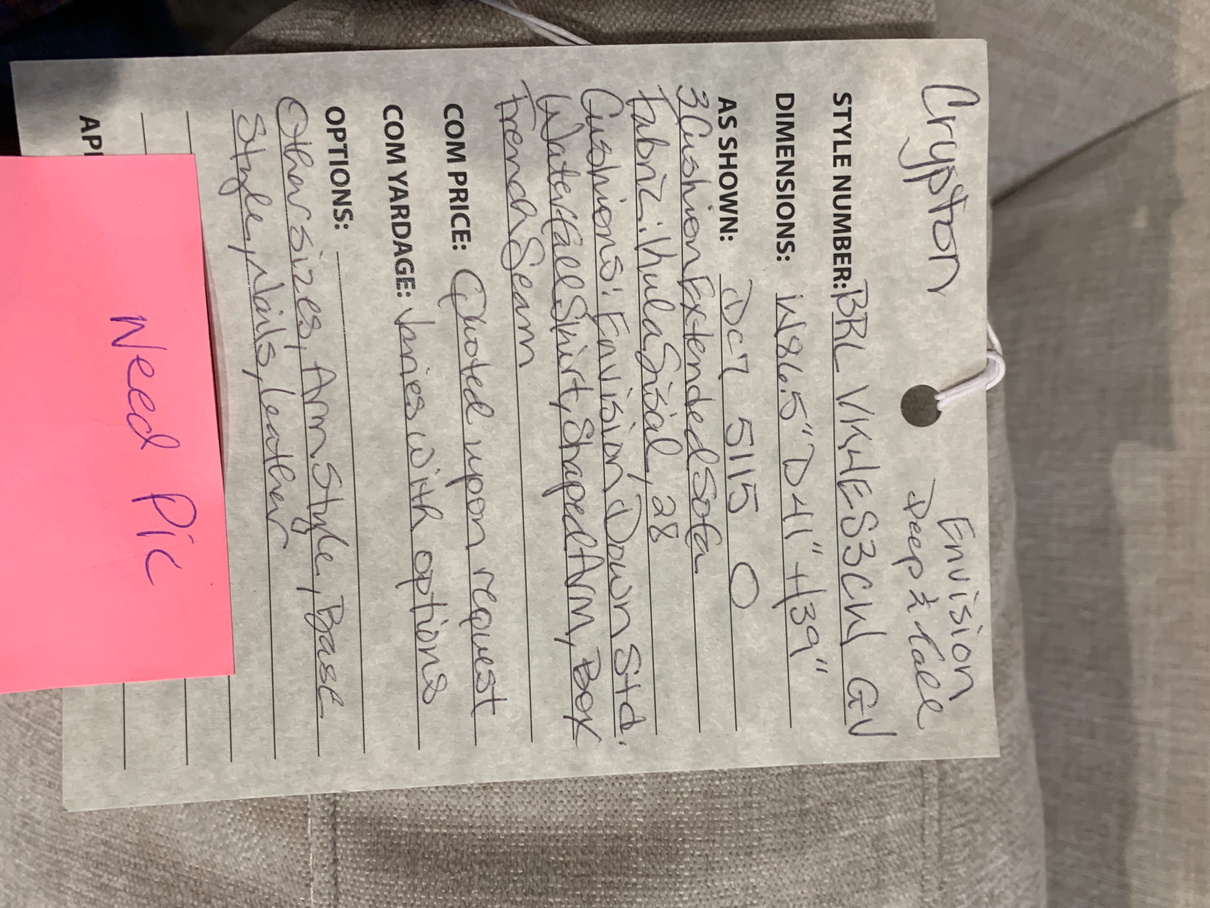 Crypton
Envision
Deep & Tall
STYLE NUMBER: BRL VK4ES3CW GV
DIMENSIONS: W86.5" D41" H39"
AS SHOWN: DC7 5115 O
3 Cushion Extended Sofa
Fabric: Hula Sisal, 28
Cushions: Envision Down Std.
Waterfall Skirt, Shaped Arm, Box
French Seam
COM PRICE: Quoted upon request
COM YARDAGE: Varies with options
OPTIONS:
Other sizes, Arm Style, Base
Style, Nails, Leather
Need Pic